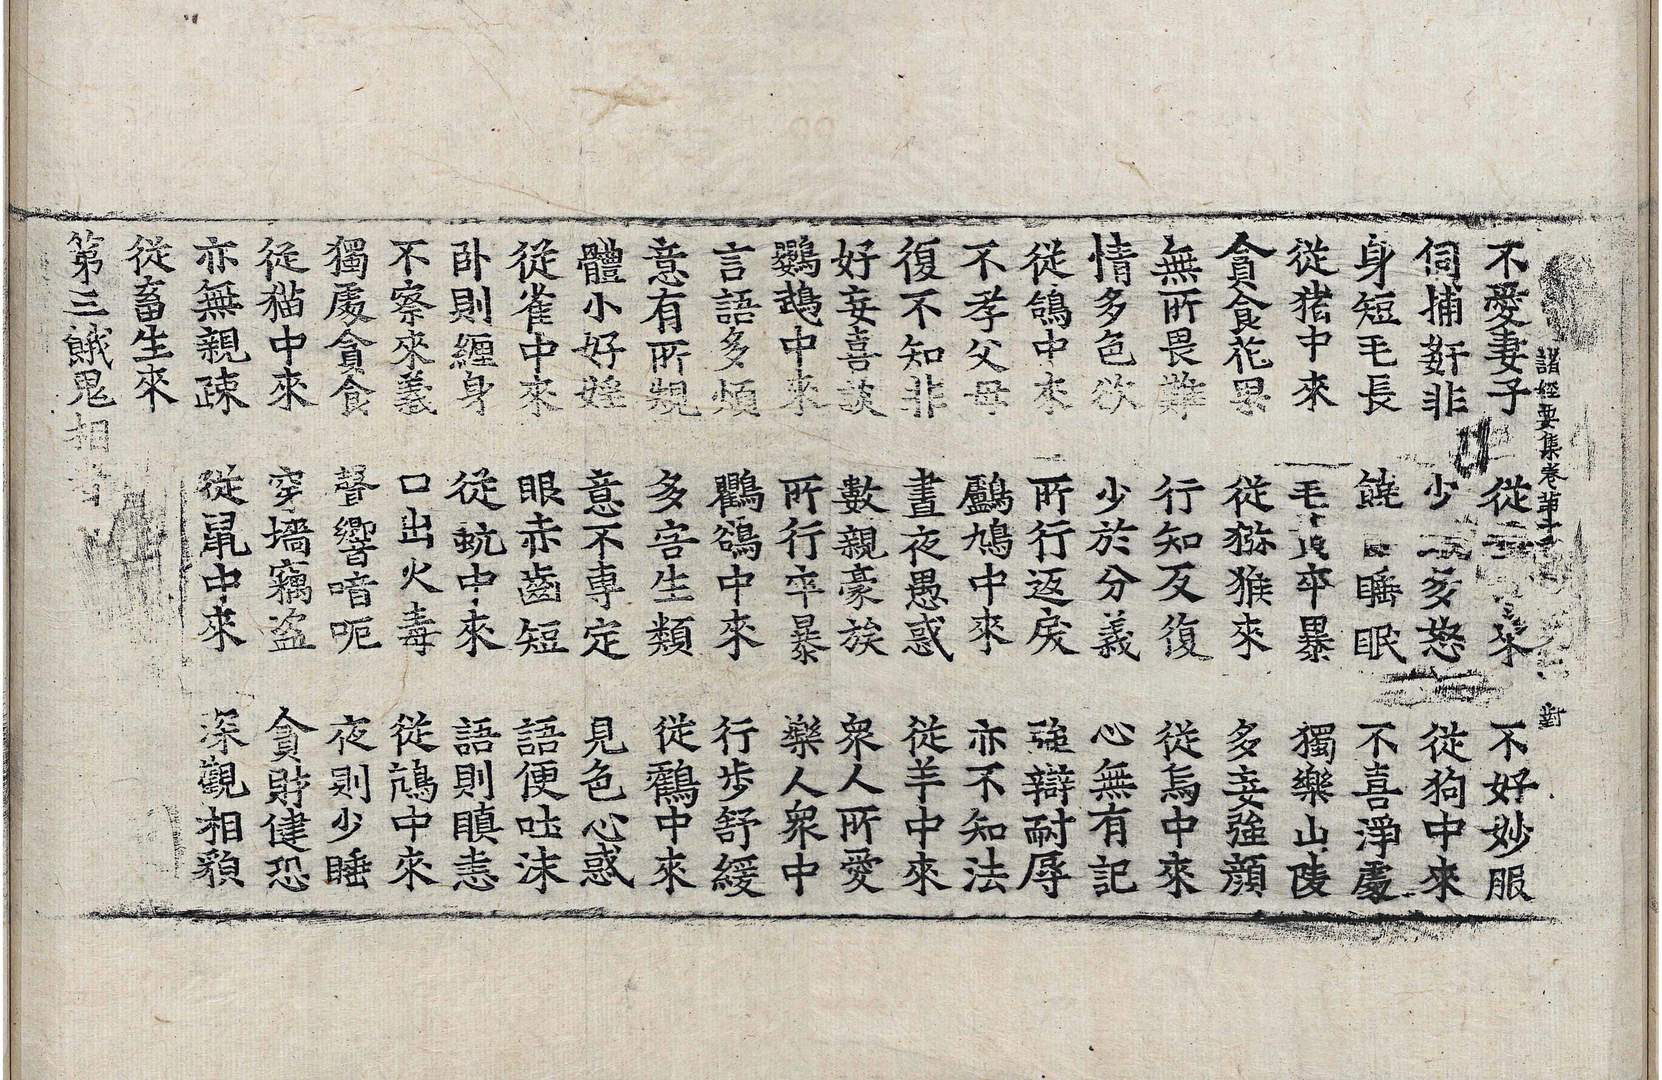 諸經要集卷第十 對
不愛妻子 從 來 不好妙服
伺捕姧非 少 多怒 從狗中來
身短毛長 饒 睡眠 不喜淨處
從猪中來 毛 卒暴 獨樂山陵
貪食花果 從猕猴來 多妄強顔
無所畏難 行知反復 從烏中來
情多色欲 少於分義 心無有記
從鴿中來 所行返戾 強辯耐辱
不孝父母 鸕鳩中來 亦不知法
復不知非 晝夜愚惑 從羊中來
好妄喜談 數親豪族 衆人所愛
鸚鵡中來 所行卒暴 樂人衆中
言語多煩 鸜鵒中來 行步舒緩
意有所規 多害生類 從鸖中來
體小好婬 意不專定 見色心惑
從雀中來 眼赤齒短 語便吐沫
卧則纏身 從蚖中來 語則瞋恚
不察來義 口出火毒 從鴆中來
獨處貪食 聲響喑呃 夜則少睡
從猫中來 穿墻竊盜 貪財健恐
亦無親疎 從鼠中來 深觀相貌
從畜生來
第三餓鬼相者